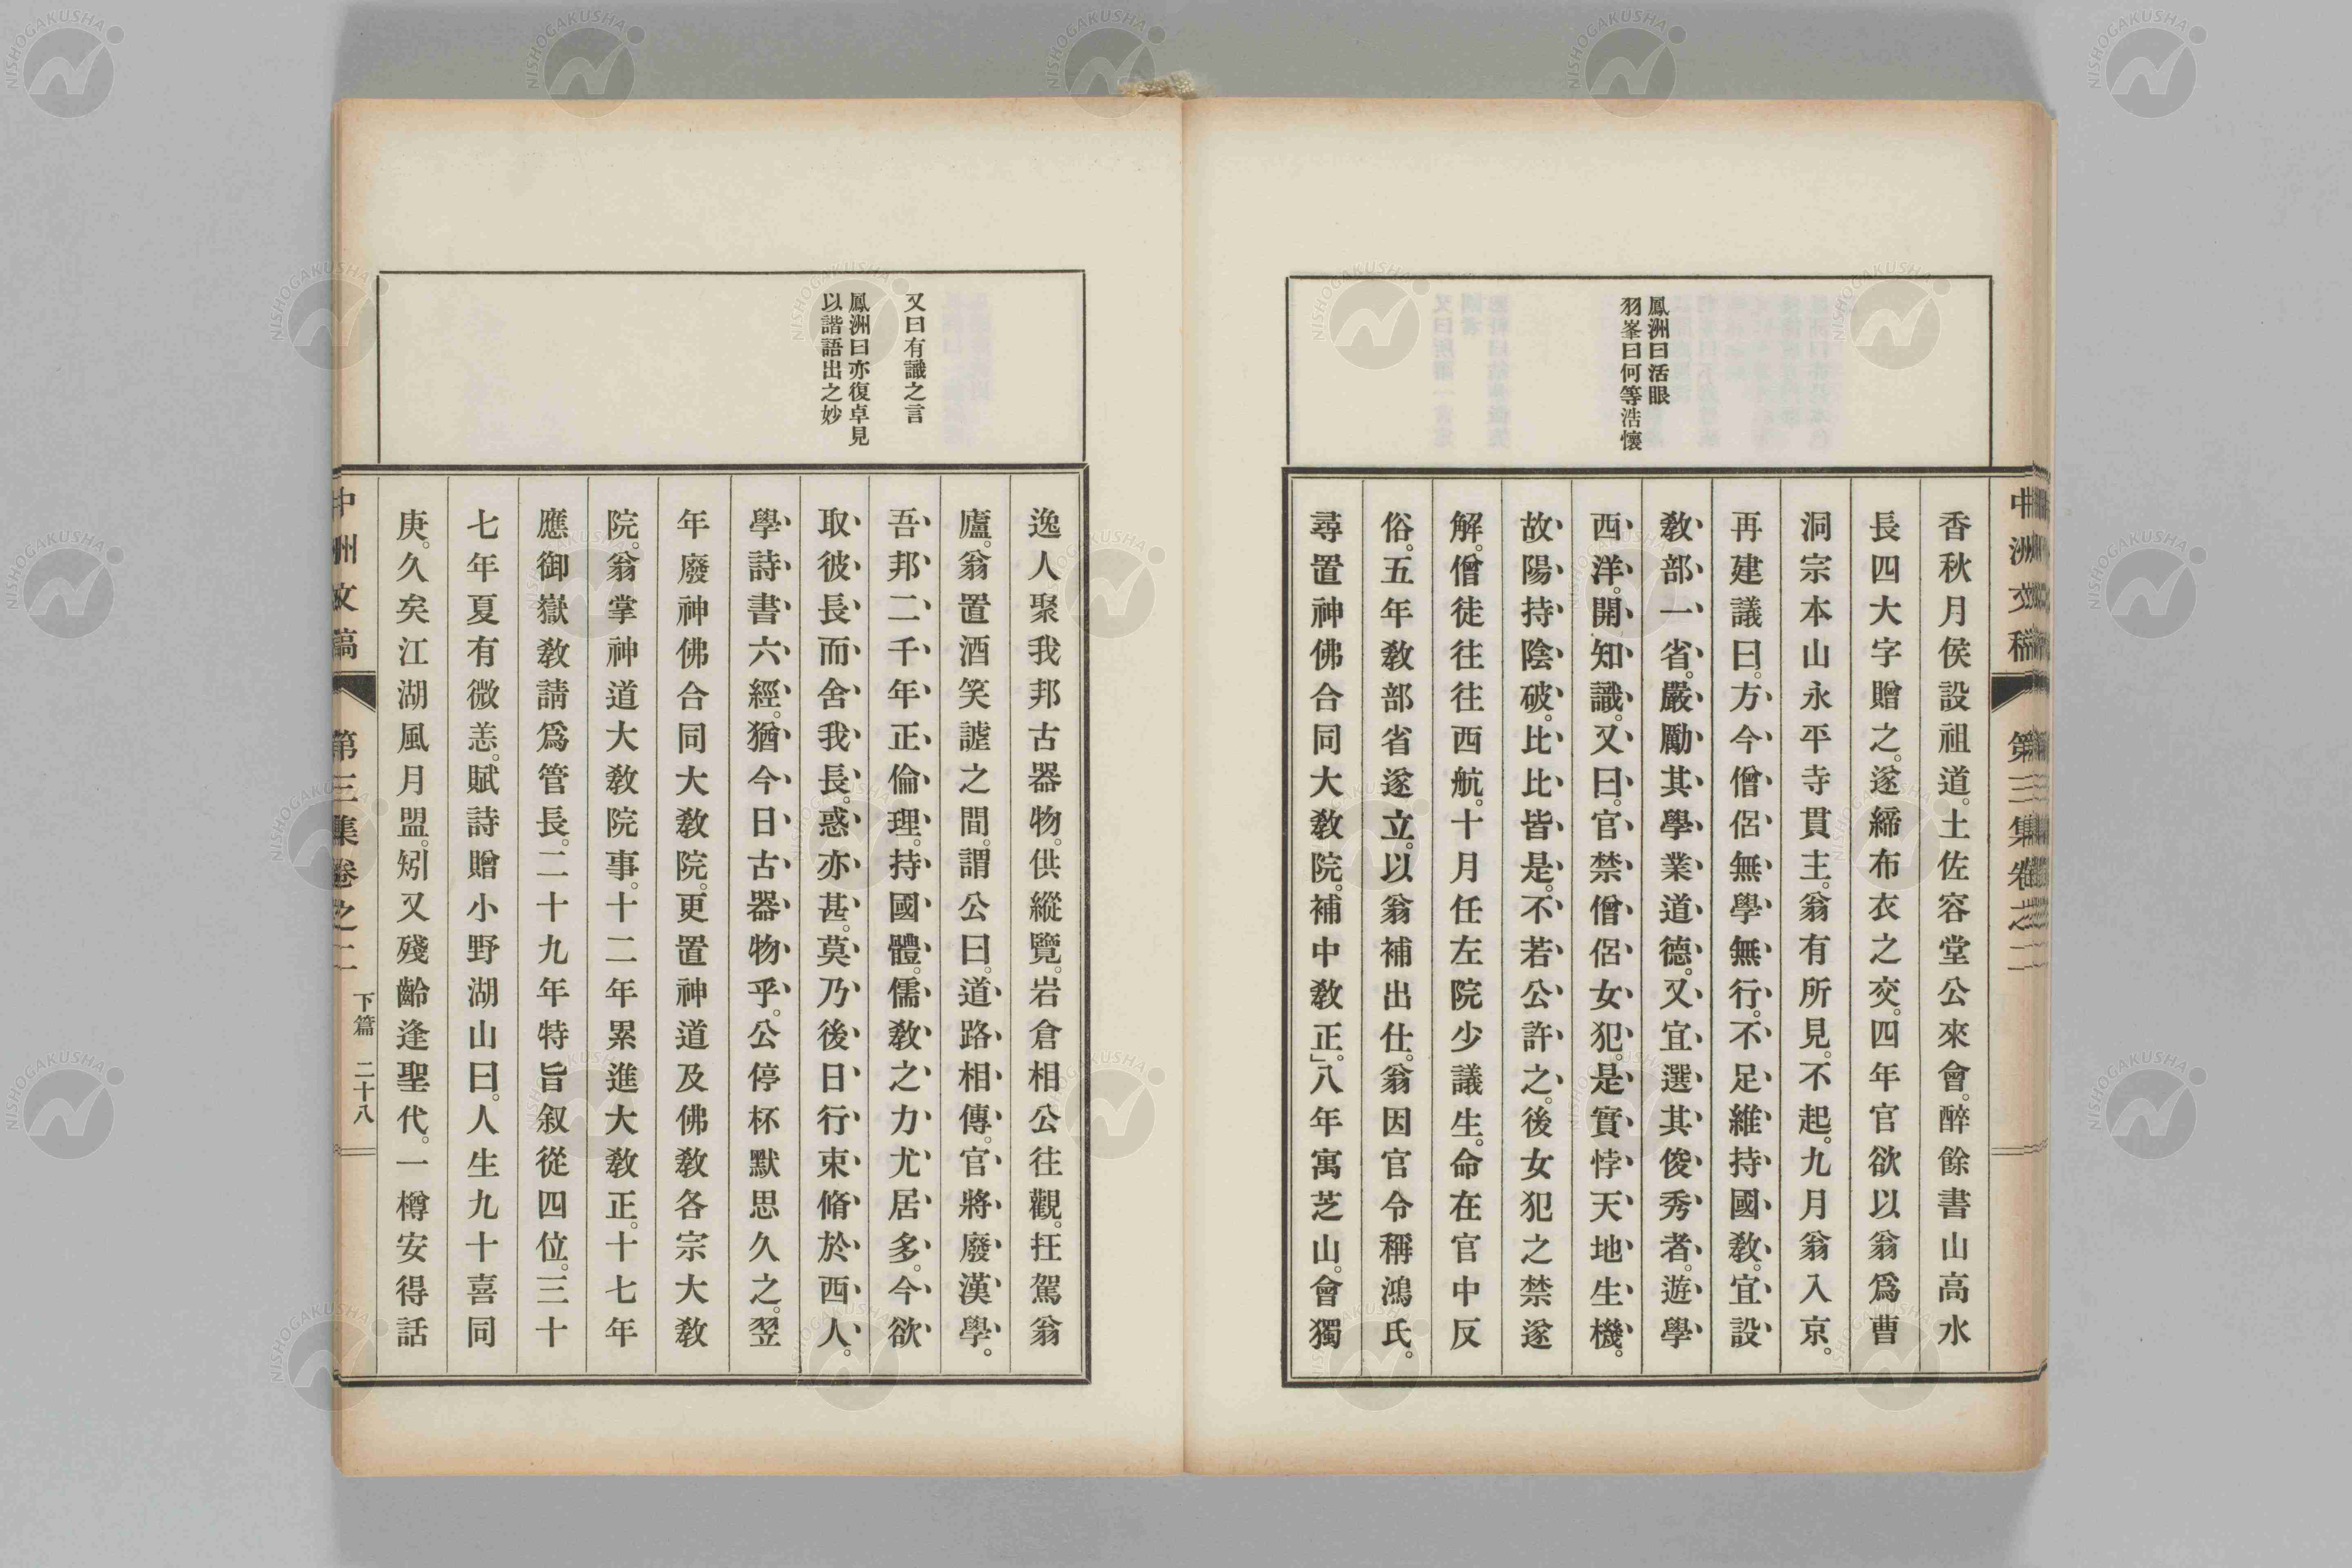 中洲文稿 第三集卷之二
鳳洲曰活眼
羽峯曰何等浩懷
香秋月侯設祖道。土佐容堂公來會。醉餘書山高水
長四大字贈之。遂締布衣之交。四年官欲以翁爲曹
洞宗本山永平寺貫主。翁有所見。不起。九月翁入京。
再建議曰。方今僧侶無學無行。不足維持國敎。宜設
敎部一省。嚴勵其學業道德。又宜選其俊秀者。遊學
西洋。開知識。又曰。官禁僧侶女犯。是實悖天地生機。
故陽持陰破。比比皆是。不若公許之。後女犯之禁遂
解。僧徒往往西航。十月任左院少議生。命在官中反
俗。五年敎部省遂立。以翁補出仕。翁因官令稱鴻氏。
尋置神佛合同大敎院。補中敎正」。八年寓芝山。會獨
又曰有識之言
鳳洲曰亦復卓見
以諧語出之妙
逸人聚我邦古器物。供縱覽。岩倉相公往觀。抂駕翁
廬。翁置酒笑謔之間。謂公曰。道路相傳。官將廢漢學。
吾邦二千年正倫理。持國體。儒敎之力尤居多。今欲
取彼長而舍我長。惑亦甚。莫乃後日行束脩於西人。
學詩書六經。猶今日古器物乎。公停杯默思久之。翌
年廢神佛合同大敎院。更置神道及佛敎各宗大敎
院。翁掌神道大敎院事。十二年累進大敎正。十七年
應御嶽敎請爲管長。二十九年特旨叙從四位。三十
七年夏有微恙。賦詩贈小野湖山曰。人生九十喜同
庚。久矣江湖風月盟。矧又殘齡逢聖代。一樽安得話
中洲文稿 第三集卷之二 下篇 二十八